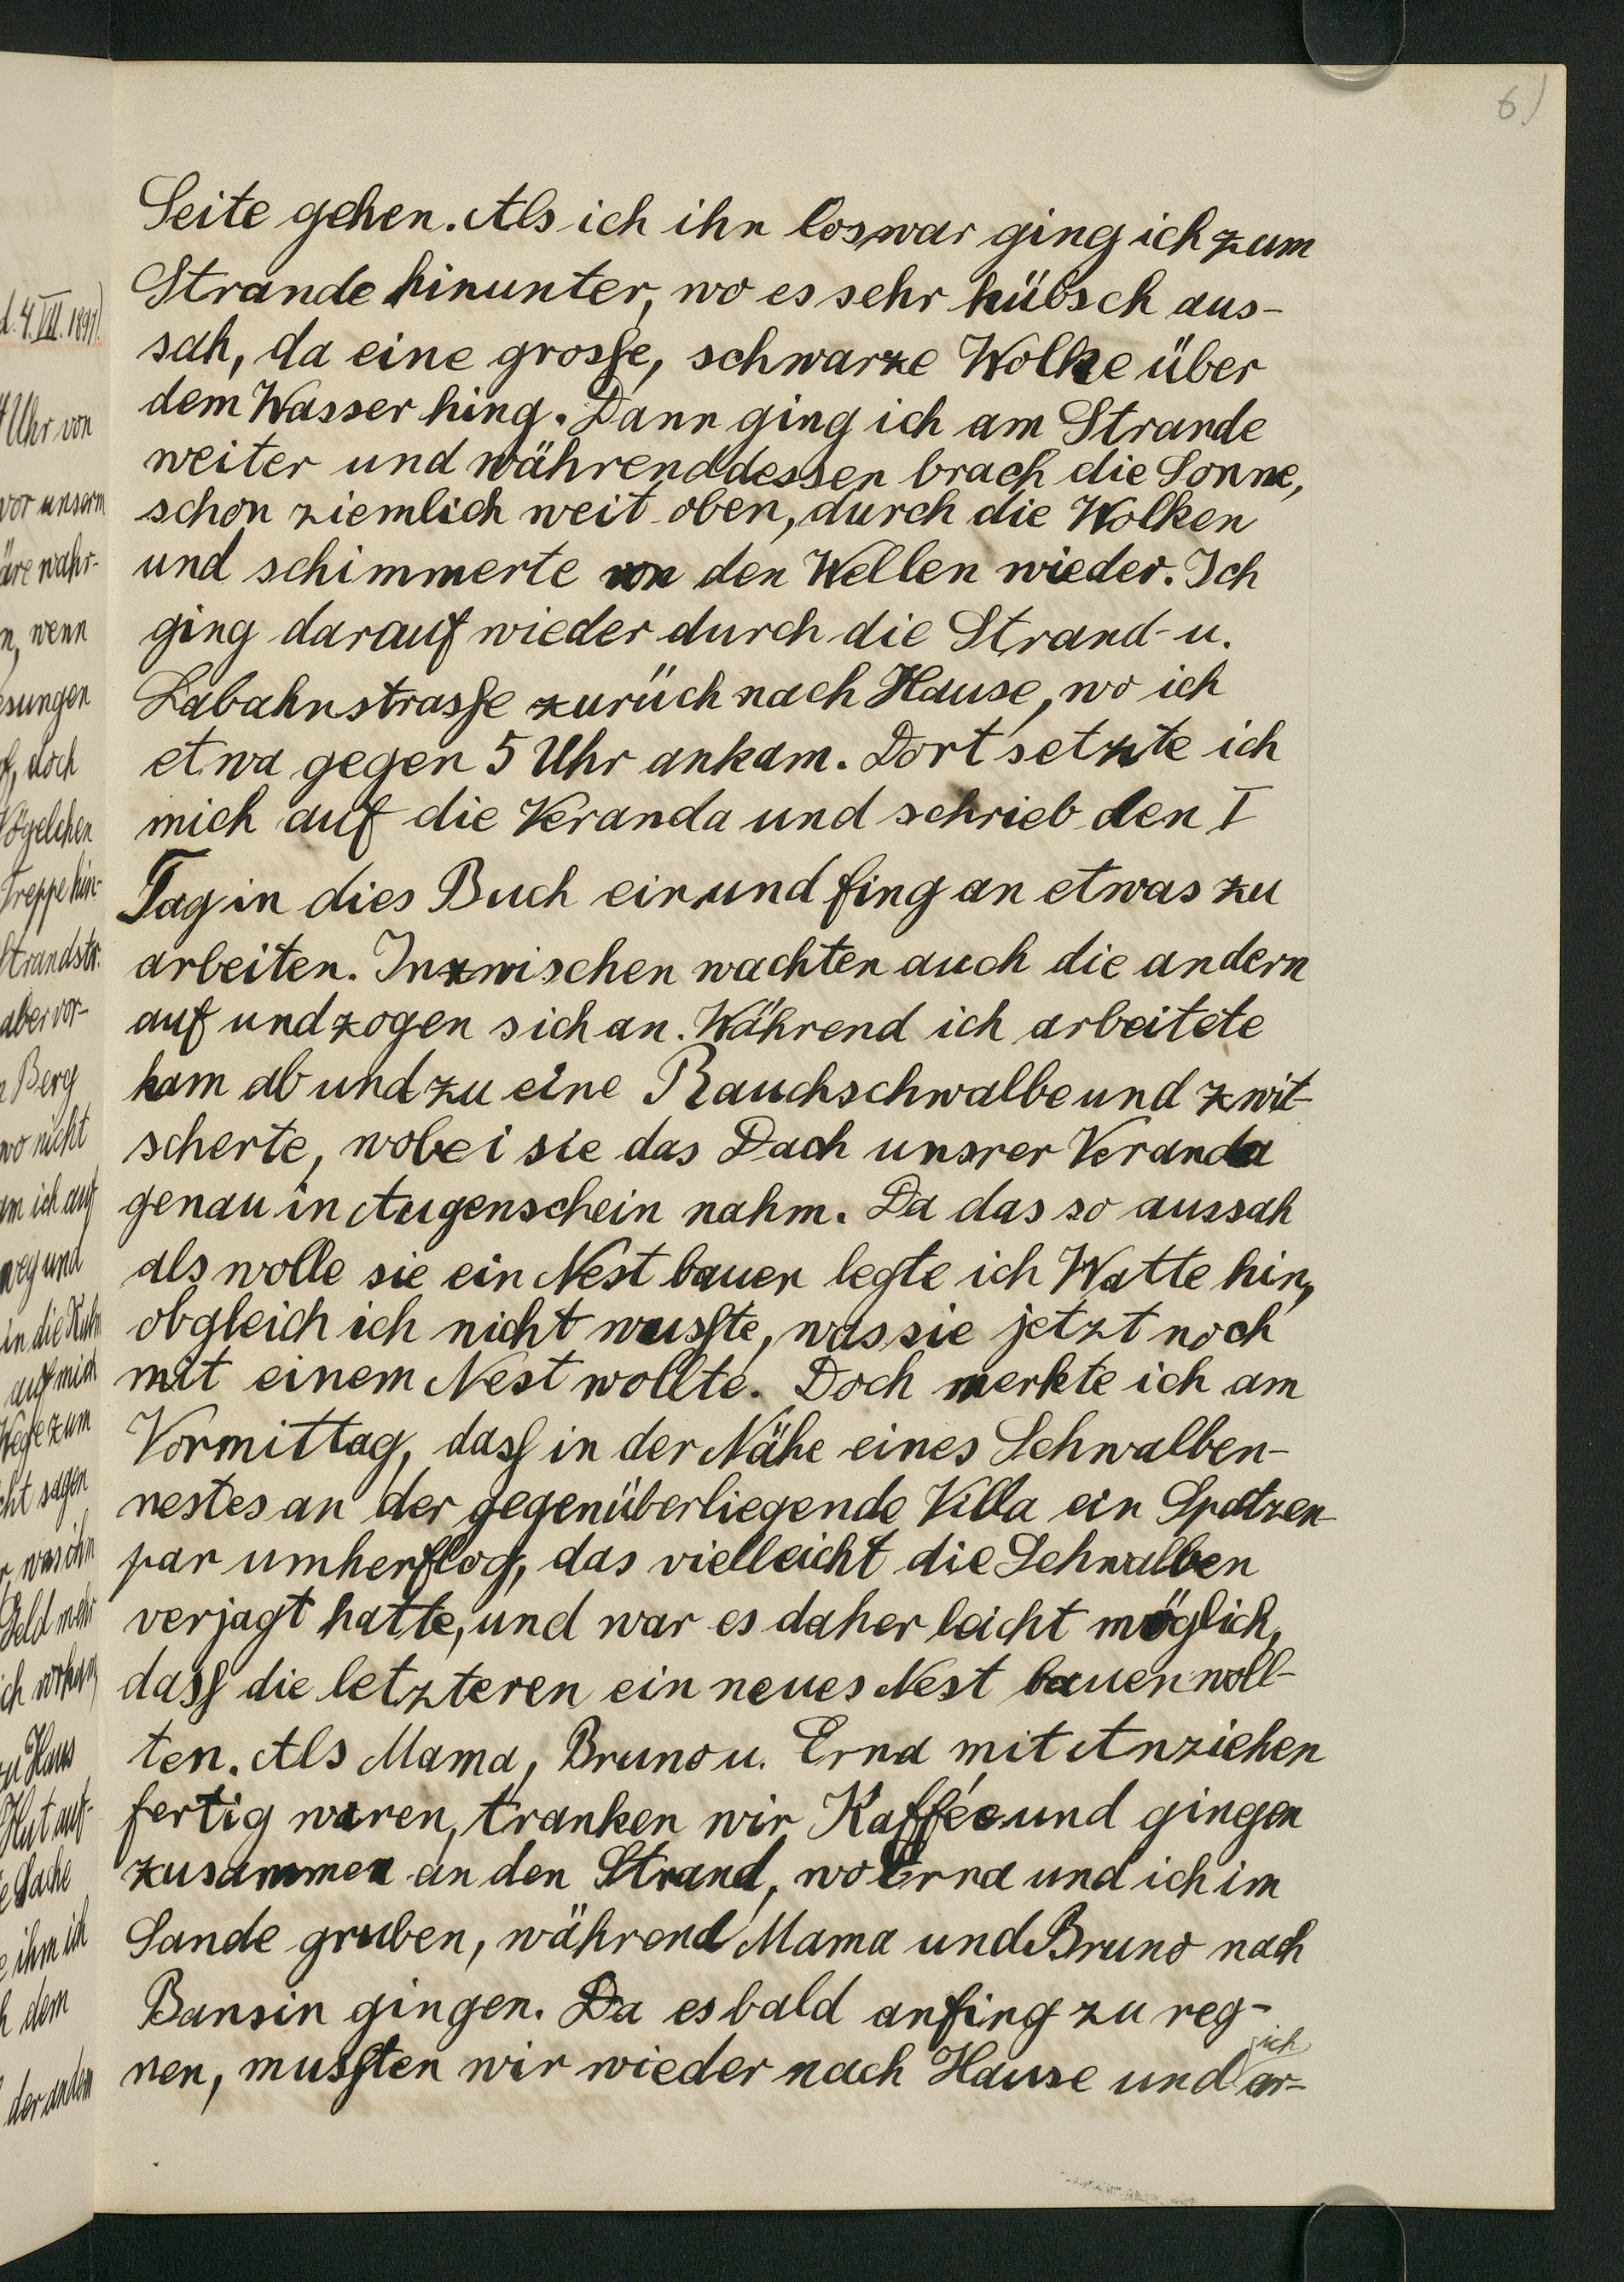 6)
Seite gehen. Als ich ihn los war ging ich zum
Strande hinunter, wo es sehr hübsch aus-
sah, da eine grosse, schwarze Wolke über
dem Wasser hing. Dann ging ich am Strande
weiter und währenddessen brach die Sonne,
schon ziemlich weit oben, durch die Wolken
und schimmerte von den Wellen wieder. Ich
ging darauf wieder durch die Strand- u.
Labahnstrasse zurück nach Hause, wo ich
etwa gegen 5 Uhr ankam. Dort setzte ich
mich auf die Veranda und schrieb den I
Tag in dies Buch ein und fing an etwas zu
arbeiten. Inzwischen wachten auch die andern
auf und zogen sich an. Während ich arbeitete
kam ab und zu eine Rauchschwalbe und zwit-
scherte, wobei sie das Dach unsrer Veranda
genau in Augenschein nahm. Da das so aussah
als wolle sie ein Nest bauen legte ich Watte hin,
obgleich ich nicht wusste, was sie jetzt noch
mit einem Nest wollte. Doch merkte ich am
Vormittag, dass in der Nähe eines Schwalben-
nestes an der gegenüberliegende Villa ein Spatzen-
par umherflog, das vielleicht die Schwalben
verjagt hatte, und war es daher leicht möglich,
dass die letzteren ein neues Nest bauen woll-
ten. Als Mama, Bruno u. Erna mit Anziehen
fertig waren, tranken wir Kaffée und gingen
zusammen an den Strand, wo Erna und ich im
Sande gruben, während Mama und Bruno nach
Bansin gingen. Da es bald anfing zu reg-
nen, mussten wir wieder nach Hause und ich ar-
d. 4. VII. 1897).
Uhr von
vor unserm
wahr-
wenn
doch
Vögelchen
Treppe hin-
Strandstr.
aber vor-
Berg
wo nicht
ich auf
weg und
in die
auf mich
Wege zum
sagen
was ihn
Geld mehr
ich
zu Haus
Hut auf-
Sache
ihm ich
dem
der andern